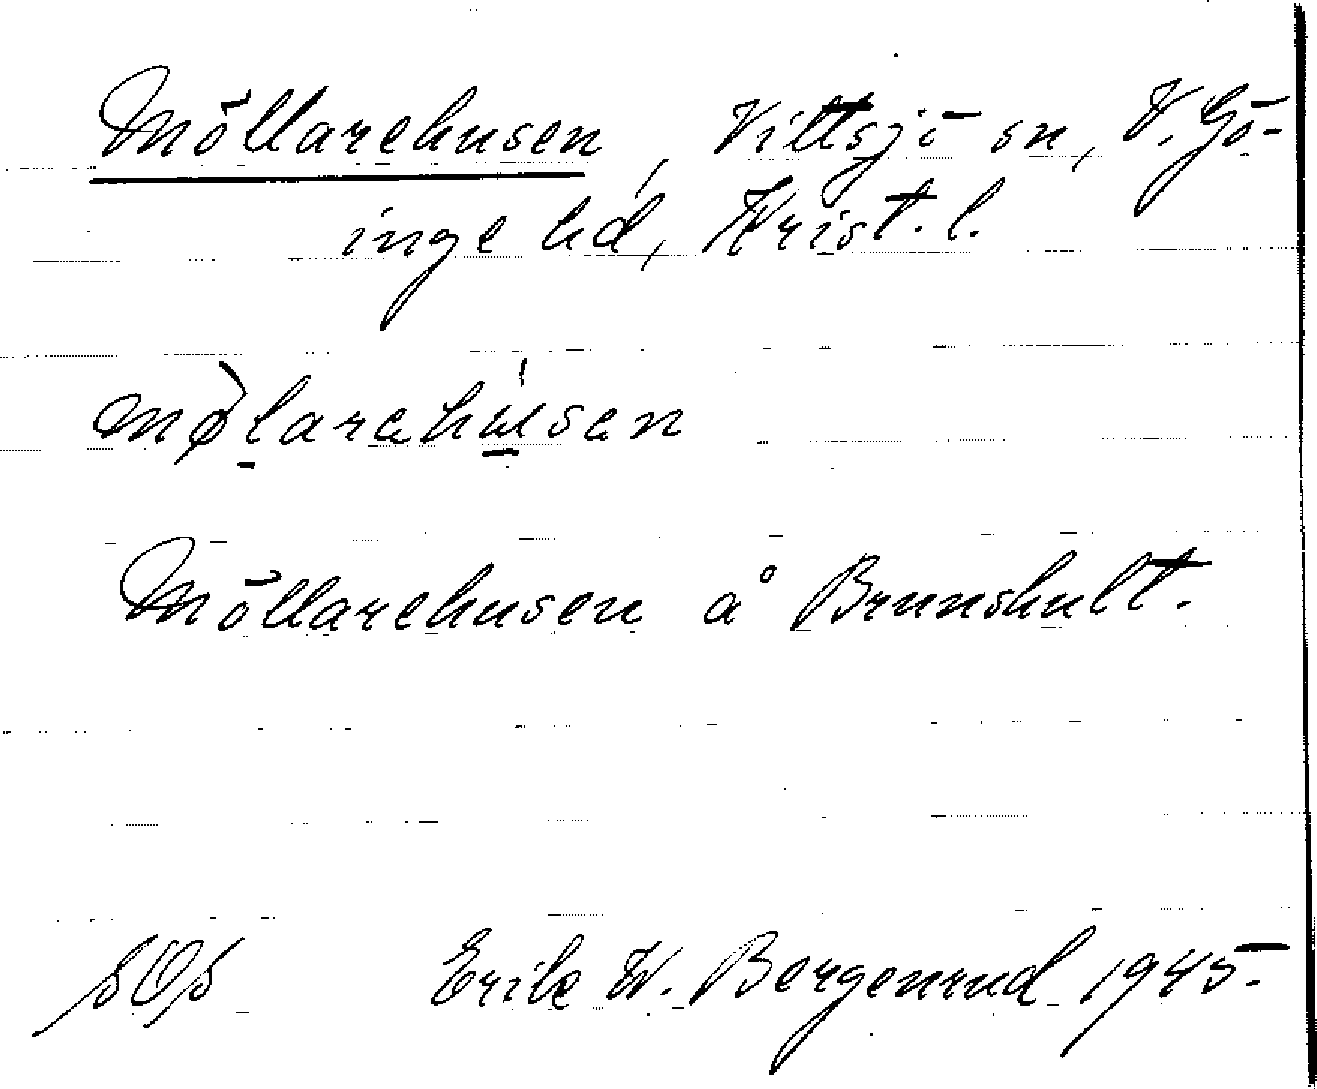 Möllarehusen, Vittsjö sn, V. Gö-
inge hd, Krist. l.
mø̀larehúsen
Möllarehusen å Brunshult.
SOS Erik W. Bergenrud 1945.